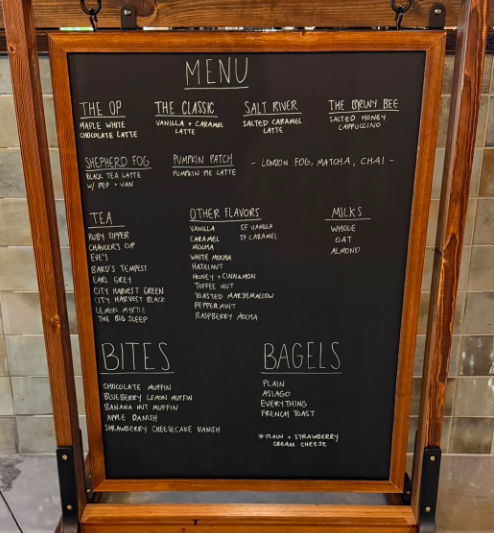 MENU
THE OP
MAPLE WHITE
CHOCOLATE LATTE
THE CLASSIC
VANILLA + CARAMEL
LATTE
SALT RIVER
SALTED CARAMEL
LATTE
THE BRUNY BEE
SALTED HONEY
CAPPUCCINO
SHEPHERD FOG
BLACK TEA LATTE
W/ PEP + VAN
PUMPKIN PATCH
PUMPKIN PIE LATTE
- LONDON FOG, MATCHA, CHAI -
TEA
RUBY SIPPER
CHAUCER'S CUP
EVE'S
BARD'S TEMPEST
EARL GREY
CITY HARVEST GREEN
CITY HARVEST BLACK
LEMON MYRTLE
THE BIG SLEEP
OTHER FLAVORS
VANILLA
CARAMEL
MOCHA
WHITE MOCHA
HAZELNUT
HONEY + CINNAMON
TOFFEE NUT
TOASTED MARSHMALLOW
PEPPERMINT
RASPBERRY MOCHA
SF VANILLA
SF CARAMEL
MILKS
WHOLE
OAT
ALMOND
BITES
CHOCOLATE MUFFIN
BLUEBERRY LEMON MUFFIN
BANANA NUT MUFFIN
APPLE DANISH
STRAWBERRY CHEESECAKE DANISH
BAGELS
PLAIN
ASIAGO
EVERYTHING
FRENCH TOAST
*PLAIN + STRAWBERRY
CREAM CHEESE